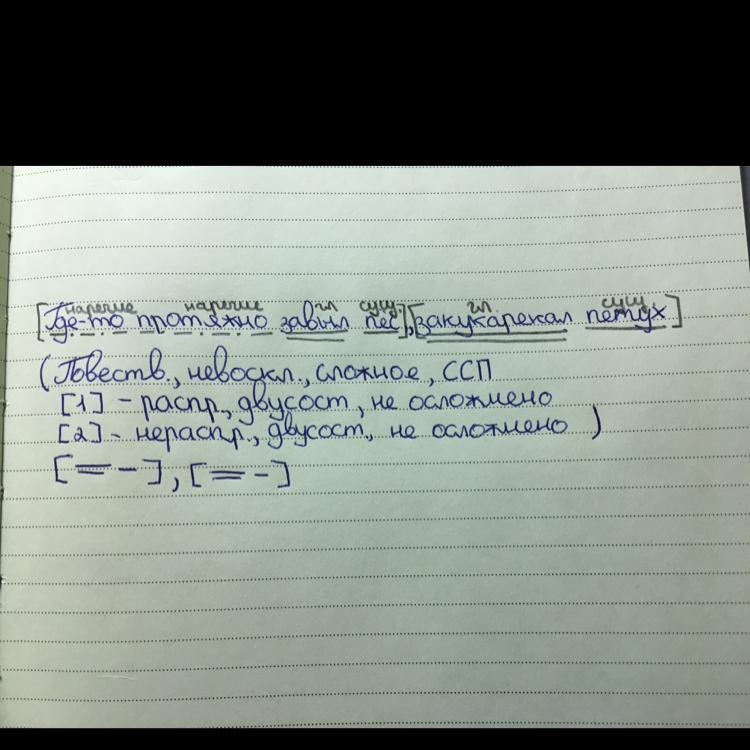 наречие наречие гл сущ. гл. сущ
[Где-то протяжно завыл пёс], [закукарекал петух]
(Повеств., невоскл., сложное, ССП
[1] - распр., двусост, не осложнено
[2] - нераспр., двусост, не осложнено )
[= -], [= -]